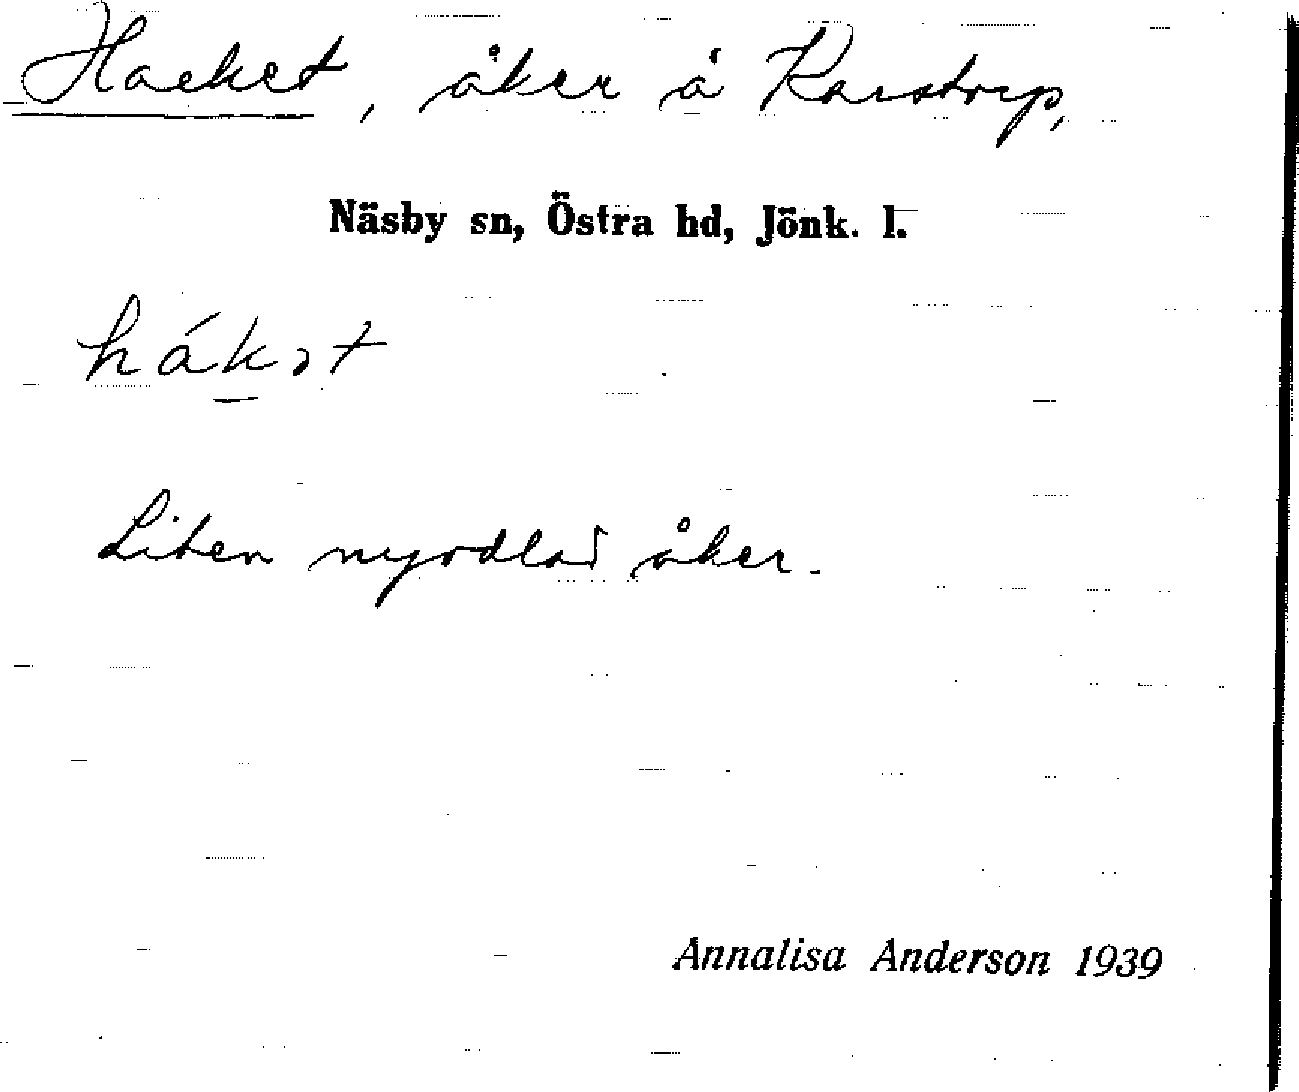 Hacket, åker å Karstorp,
Näsby sn, Östra hd, Jönk. l.
hákət
Liten nyodlad åker.
Annalisa Anderson 1939